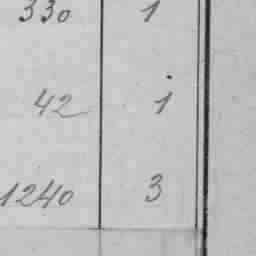 330 1
42 1
1240 3